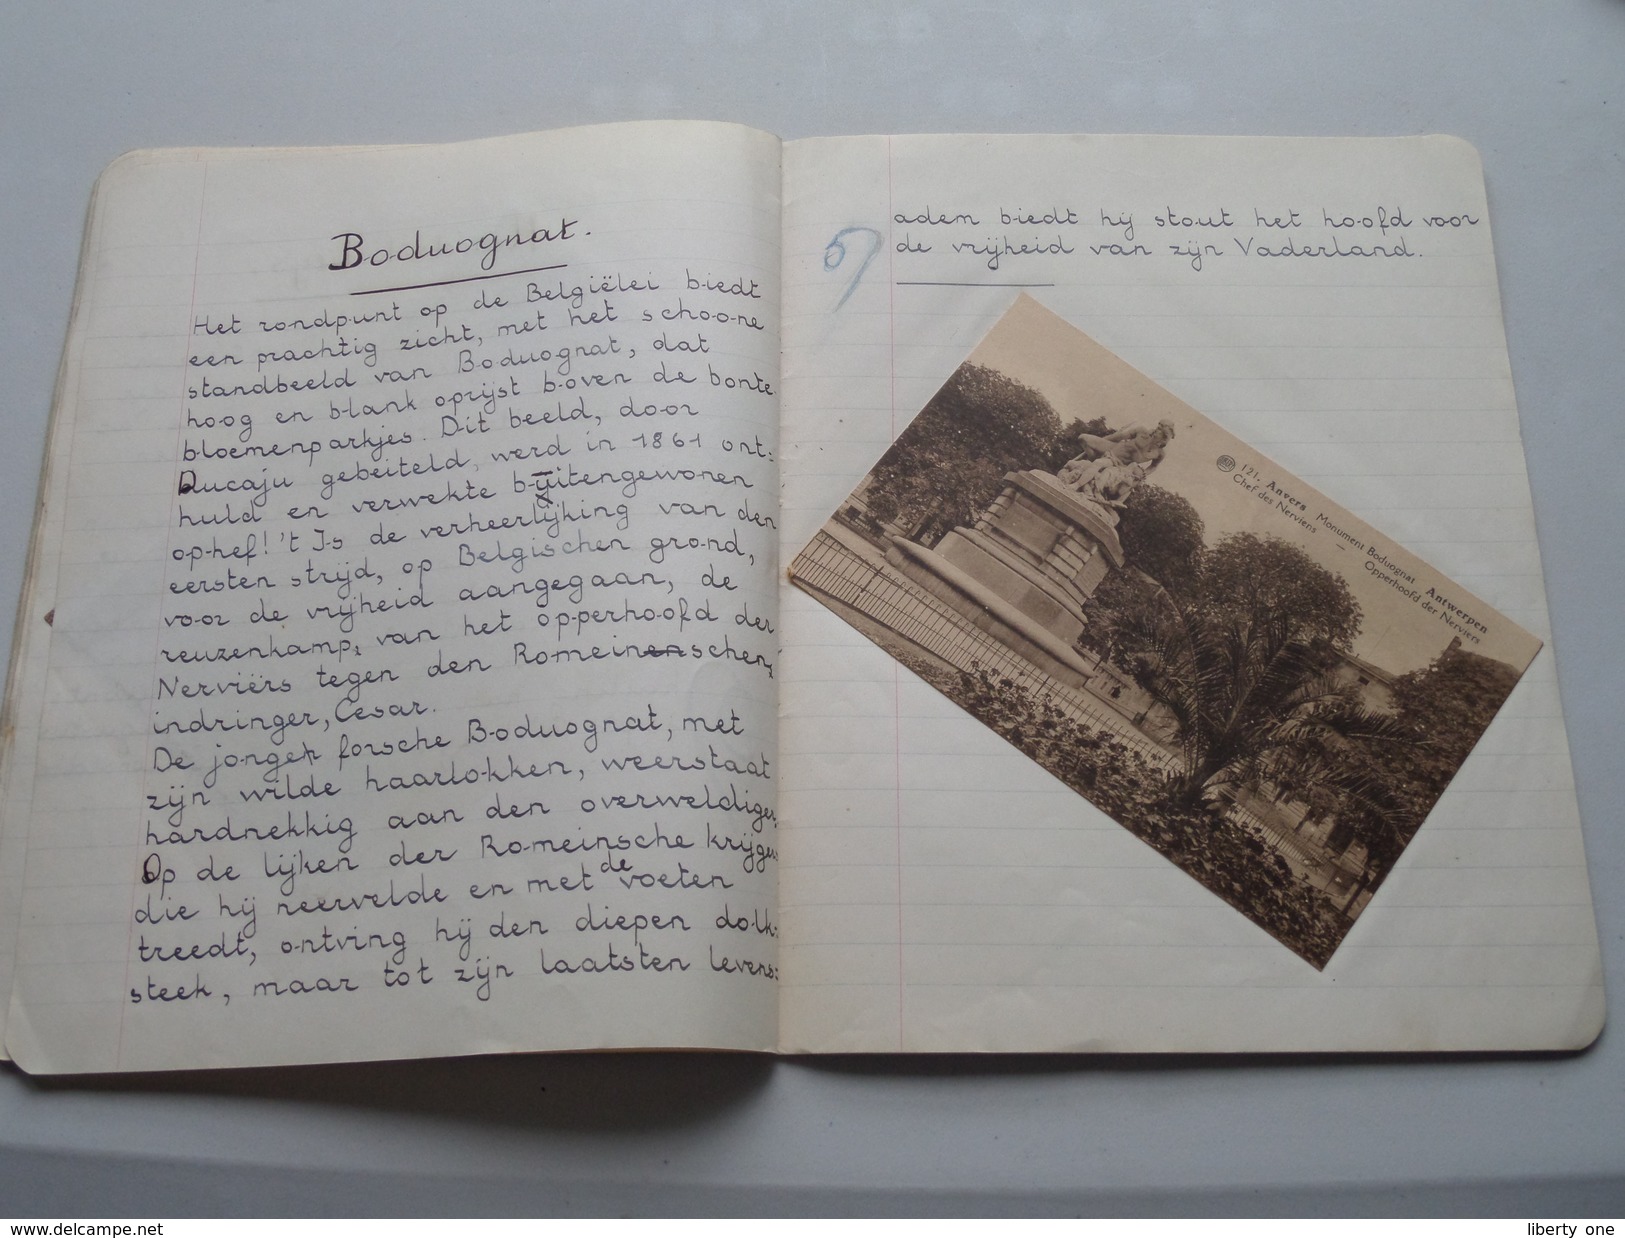 Boduognat.
Het rondpunt op de Belgiëlei biedt
een prachtig zicht, met het schoone
standbeeld van Boduognat, dat
hoog en blank oprijst boven de bonte
bloemenparkjes. Dit beeld, door
Ducaju gebeiteld, werd in 1861 ont:
huld en verwekte buitengewonen
op-hef! 't Is de verheerlijking van den
eersten strijd, op Belgischen grond,
voor de vrijheid aangegaan, de
reuzenkamp, van het opperhoofd der
Nerviërs tegen den Romeinschen,
indringer, Cesar.
De jonge, forsche Boduognat, met
zijn wilde haarlokken, weerstaat
hardnekkig aan den overweldiger.
Op de lijken der Romeinsche krijgers
die hij neervelde en met de voeten
treedt, ontving hij den diepen dolk:
steek, maar tot zijn laatsten levens:
adem biedt hij stout het hoofd voor
de vrijheid van zijn Vaderland.
121. Anvers Monument Boduognat Antwerpen
Chef des Nerviens — Opperhoofd der Nerviers
www.delcampe.net
liberty one